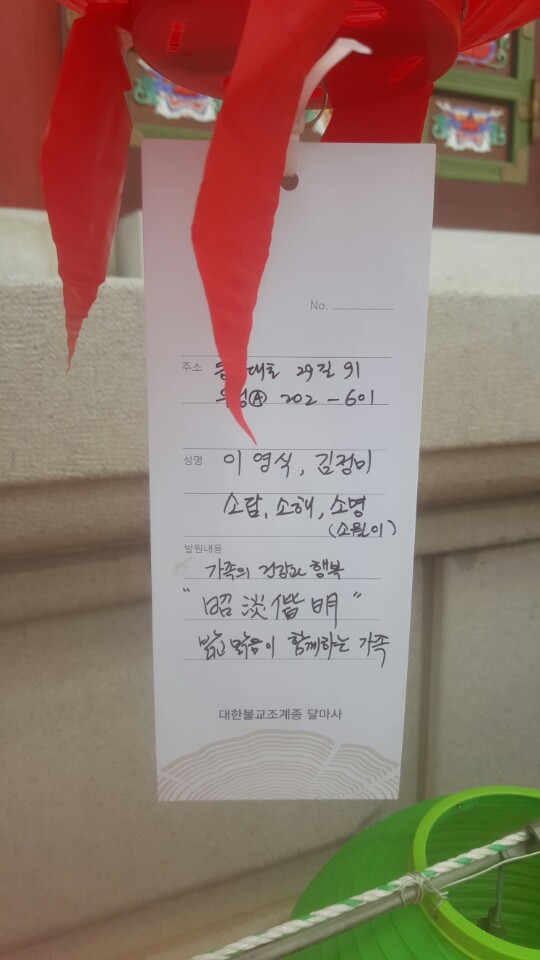 No.
주소 대로 29길 91
Ⓐ 202 - 601
성명 이영식, 김정미
소담, 소해, 소명
(소원이)
발원내용
가족의 건강과 행복
"昭淡偕明"
밝고 맑음이 함께하는 가족
대한불교조계종 달마사